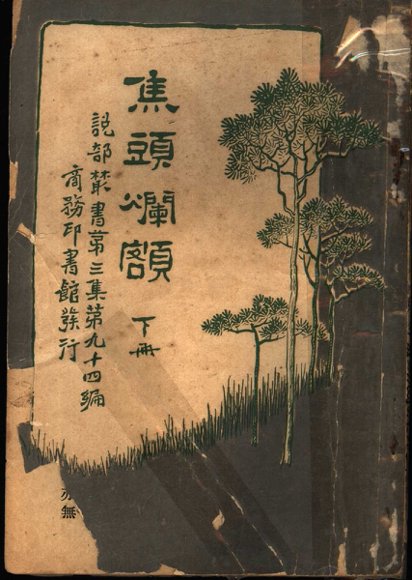 焦頭爛額
下冊
說部叢書第三集第九十四編
商務印書館發行
無